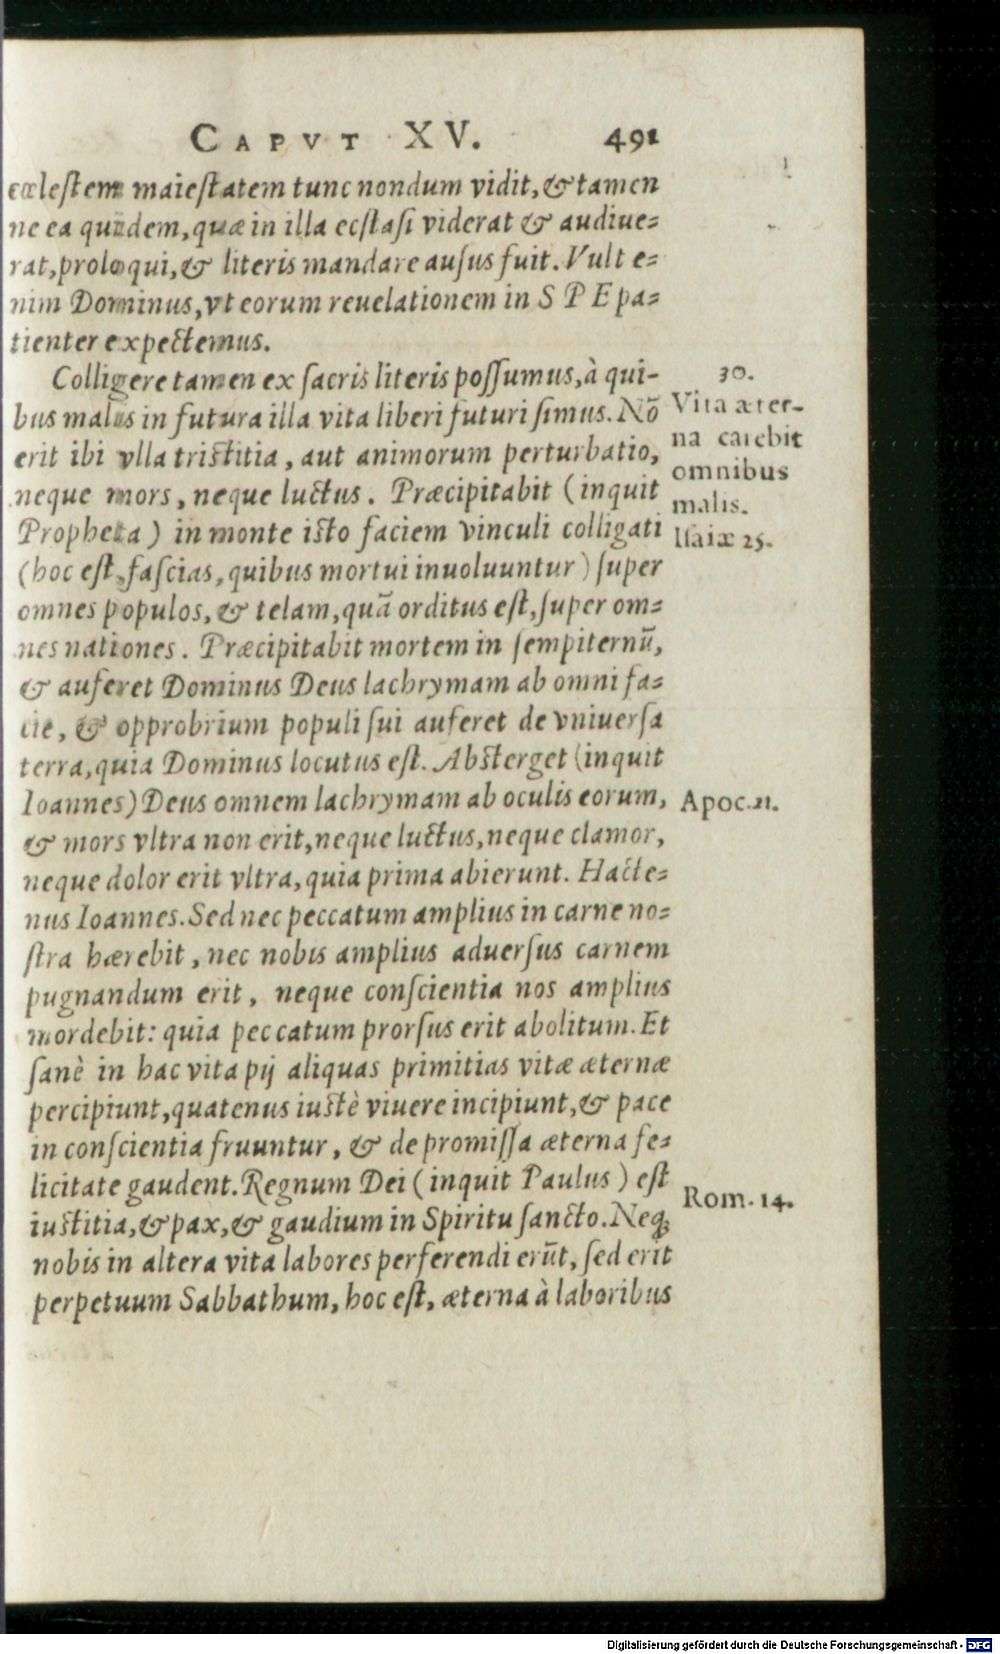 CAPVT XV. 491
cœlestem maiestatem tunc nondum vidit, & tamen
ne ea quidem, quæ in illa ecstasi viderat & audiue-
rat, proloqui, & literis mandare ausus fuit. Vult e-
nim Dominus, vt eorum reuelationem in SPE pa-
tienter expectemus.
Colligere tamen ex sacris literis possumus, à qui-
bus malis in futura illa vita liberi futuri simus. Nō
erit ibi vlla tristitia, aut animorum perturbatio,
neque mors, neque luctus. Præcipitabit (inquit
Propheta) in monte isto faciem vinculi colligati
(hoc est, fascias, quibus mortui inuoluuntur) super
omnes populos, & telam, quā orditus est, super om-
nes nationes. Præcipitabit mortem in sempiternū,
& auferet Dominus Deus lachrymam ab omni fa-
cie, & opprobrium populi sui auferet de vniuersa
terra, quia Dominus locutus est. Absterget (inquit
Ioannes) Deus omnem lachrymam ab oculis eorum,
& mors vltra non erit, neque luctus, neque clamor,
neque dolor erit vltra, quia prima abierunt. Hacte-
nus Ioannes. Sed nec peccatum amplius in carne no-
stra hærebit, nec nobis amplius aduersus carnem
pugnandum erit, neque conscientia nos amplius
mordebit: quia peccatum prorsus erit abolitum. Et
sanè in hac vita pij aliquas primitias vitæ æternæ
percipiunt, quatenus iustè viuere incipiunt, & pace
in conscientia fruuntur, & de promissa æterna fe-
licitate gaudent. Regnum Dei (inquit Paulus) est
iustitia, & pax, & gaudium in Spiritu sancto. Neq;
nobis in altera vita labores perferendi erūt, sed erit
perpetuum Sabbathum, hoc est, æterna à laboribus
30.
Vita æter-
na carebit
omnibus
malis.
Isaiæ 25.
Apoc. 21.
Rom. 14.
Digitalisierung gefördert durch die Deutsche Forschungsgemeinschaft - DFG